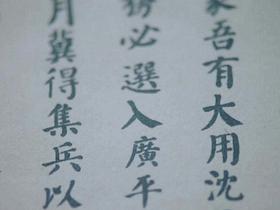 家吾有大用沈
必選入廣平
月冀得集兵以